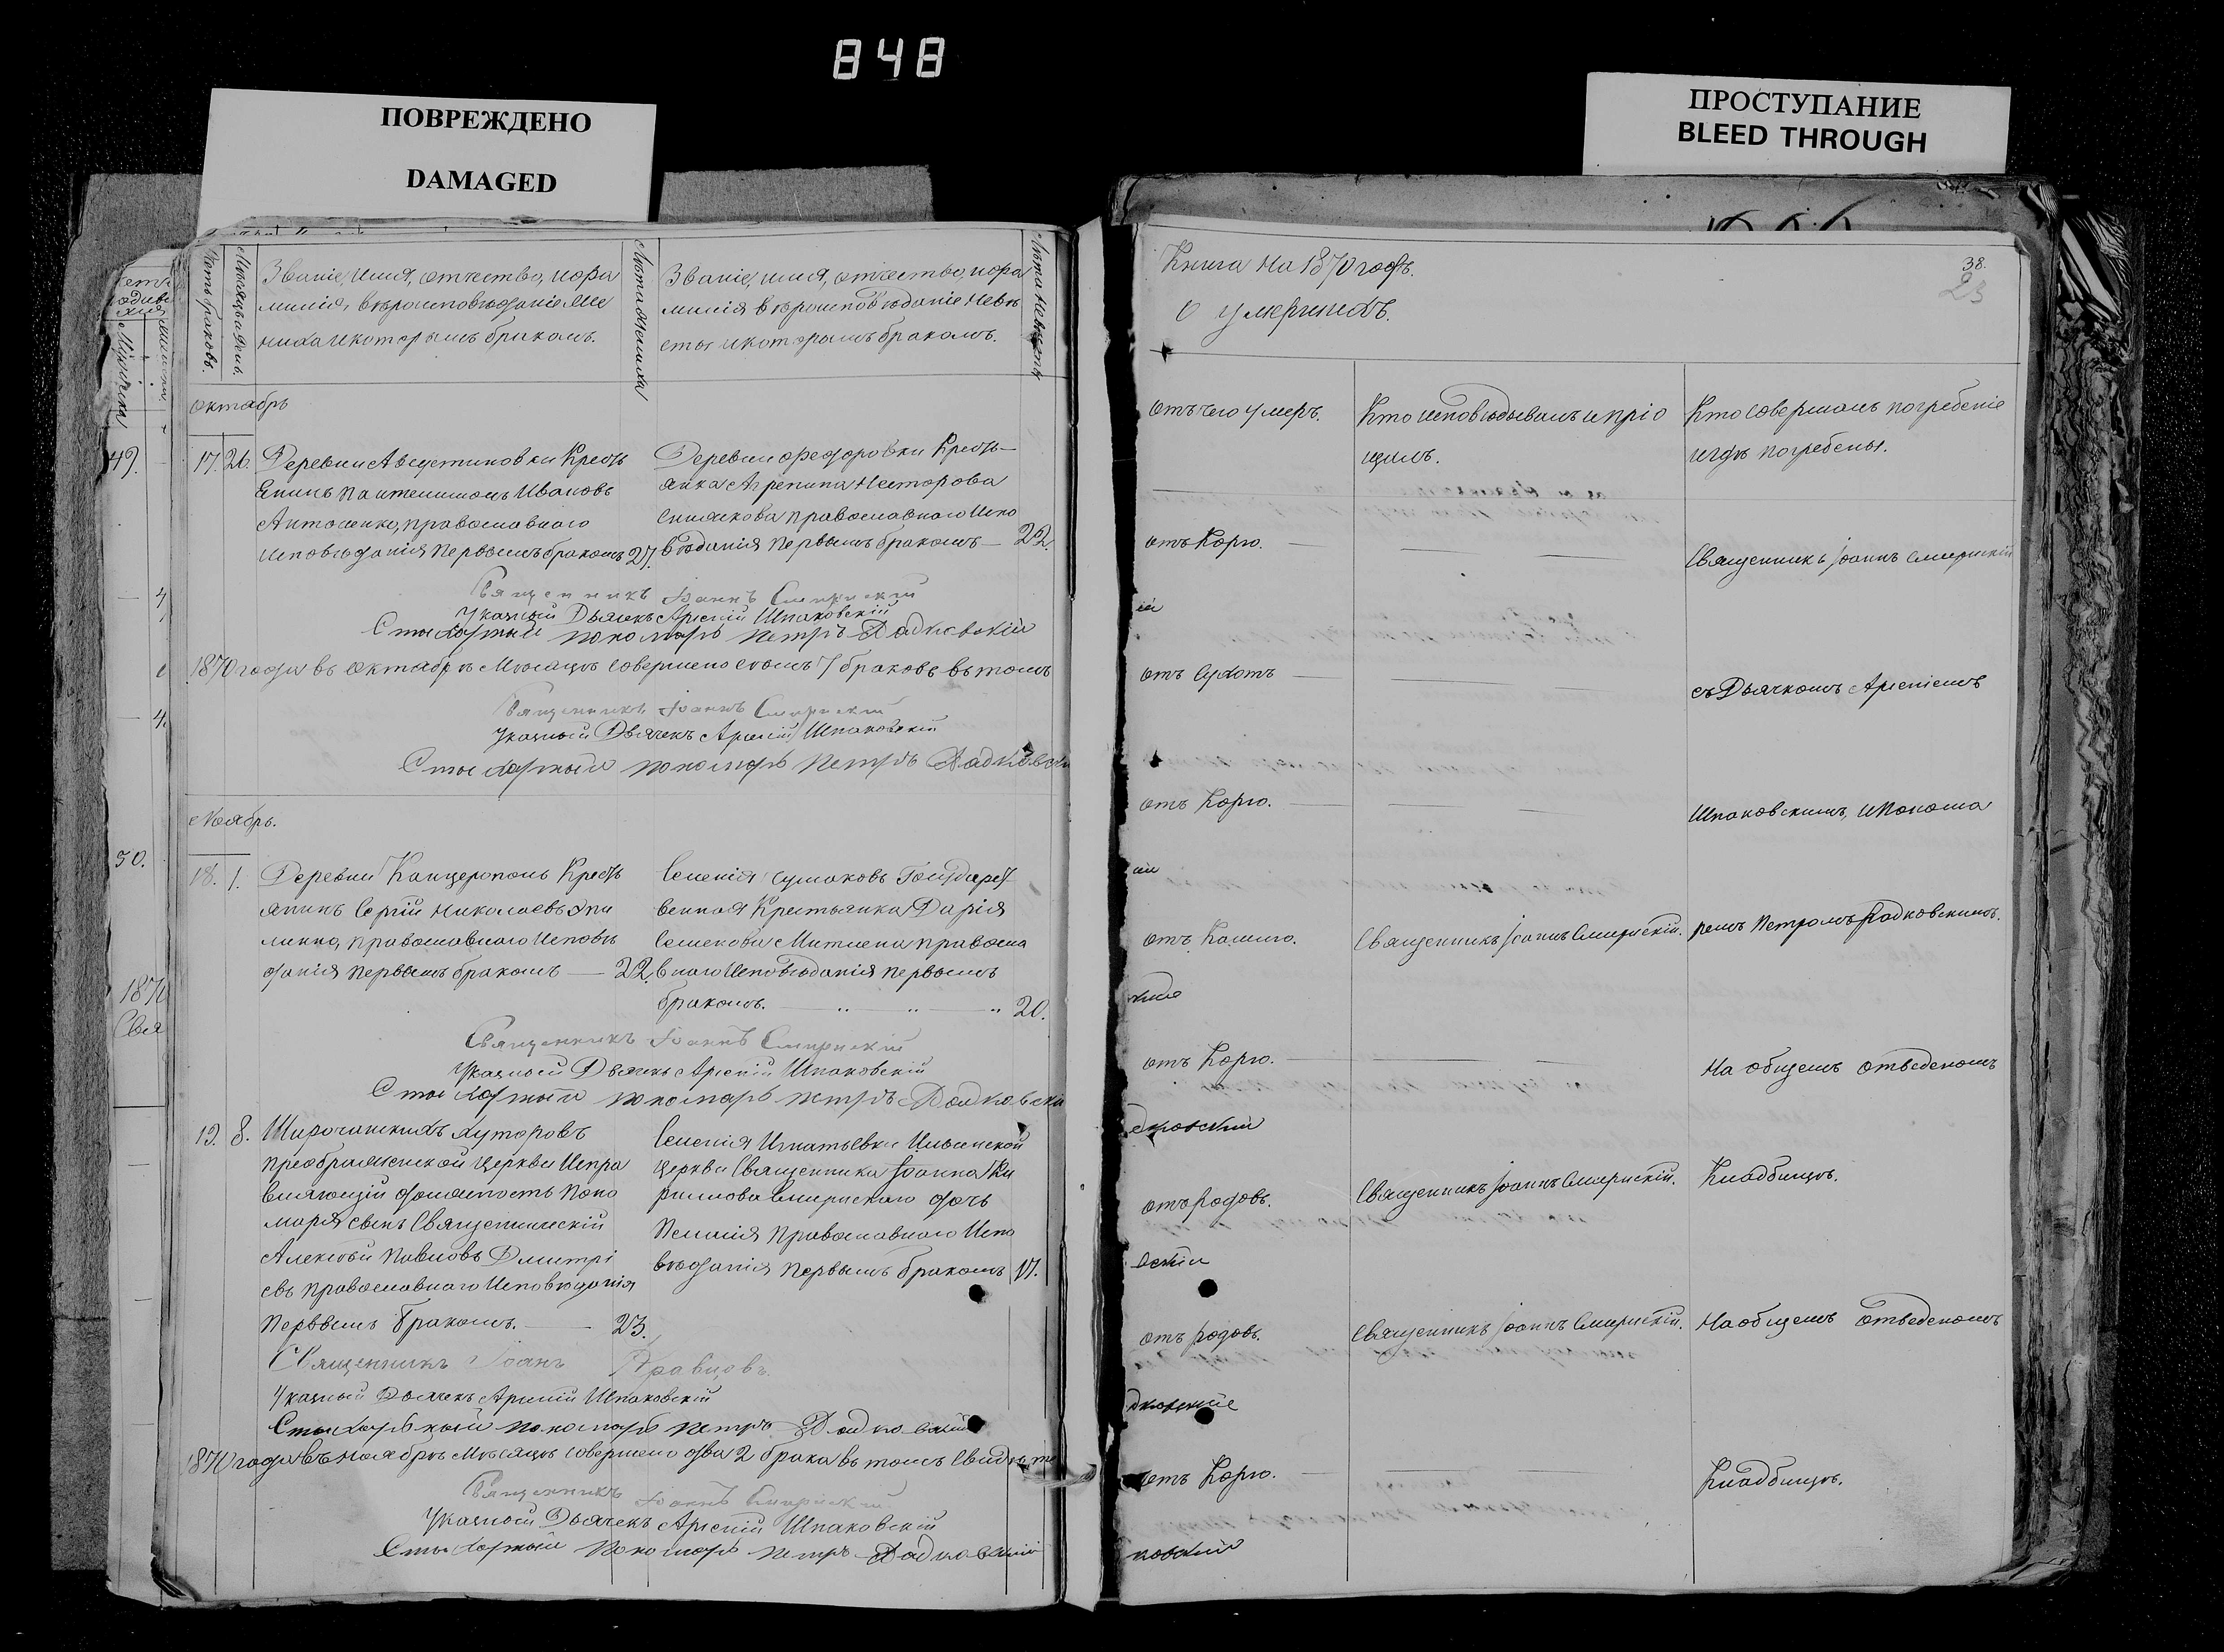 848
ПОВРЕЖДЕНО
DAMAGED
ПРОСТУПАНИЕ
BLEED THROUGH
Званіе, имя, отчество, ифа
милія, вѣроисповѣданіе Же
ниха и которымъ бракомъ.
Лѣта жениха
Званіе, имя, отчество, ифа
милія вѣроисповѣданіе Невѣ
сты и которымъ бракомъ.
Лѣта невѣсты
Октябрь
49.
17. 26. Деревни Августиновки Кресть
янинъ Пантелимонъ Ивановъ
Антоненко, православнаго
исповѣданія первымъ бракомъ 27.
Деревни Федоровки Кресть-
янка Агрепина Несторова
православнаго Испо
вѣданія первымъ бракомъ — 22.
Священникъ Іоаннъ Смирнскій
Указный Дьячекъ Арсеній Шпаковскій
пономарь Петръ Радковскій
1870 года въ Октябрѣ Мѣсяцѣ совершено 7 браковъ въ томъ
Священникъ Іоаннъ Смирнскій
Указный Дьячекъ Арсеній Шпаковскій
пономарь Петръ
Ноябрь.
50.
18. 1. Деревни Канцерополь Кресть
янинъ Сергій Николаевъ
православнаго Исповѣ
данія первымъ бракомъ — 22.
Селенія Сумаковъ Государст
венная Крестьянка Дарія
Семенова православ
наго Исповѣданія первымъ
бракомъ. — " — " — " 20.
Священникъ Іоаннъ Смирнскій
Указный Дьячекъ Арсеній Шпаковскій
пономарь Петръ
19. 8. хуторовъ
Преображенской Церкви Испра
вляющій должность Поно
маря сынъ Священническій
Алексѣй Павловъ Дмитрі
евъ православнаго Исповѣданія
первымъ бракомъ. — 23.
Селенія Игнатьевки Ильинской
Церкви Священника Іоанна Ки
рилова Смирнскаго дочь
Православнаго Испо
вѣданія первымъ бракомъ 17.
Священникъ Іоанъ Кравцовъ
Указный Дьячекъ Арсеній Шпаковскій
пономарь Петръ Радковскій
1870 года въ Ноябрѣ Мѣсяцѣ совершено два 2 брака въ томъ
Священникъ Іоаннъ Смирнскій
Указный Дьячекъ Арсеній Шпаковскій
пономарь Петръ Радковскій
Книга на 1870 годъ.
О умершихъ.
38.
23
отъ чего умеръ.
Кто исповѣдывалъ и пріо
щалъ.
Кто совершалъ погребеніе
и гдѣ погребены.
отъ Корю. — Священникъ Іоаннъ Смирнскій
отъ Сухотъ — съ Дьячкомъ Арсеніемъ
отъ Корю. — Шпаковскимъ, и Понома
отъ Кашлю. Священникъ Іоаннъ Смирнскій. ремъ Петромъ Радковскимъ.
отъ Корю. — На общемъ отведеномъ
отъ Родовъ. Священникъ Іоаннъ Смирнскій. Кладбищѣ.
отъ родовъ. Священникъ Іоаннъ Смирнскій. На общемъ отведеномъ
отъ Корю. — Кладбищѣ.